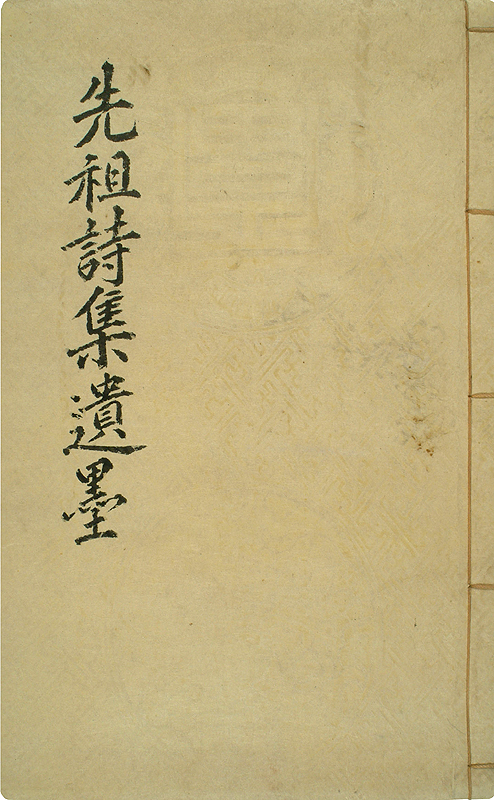 先祖詩集遺墨